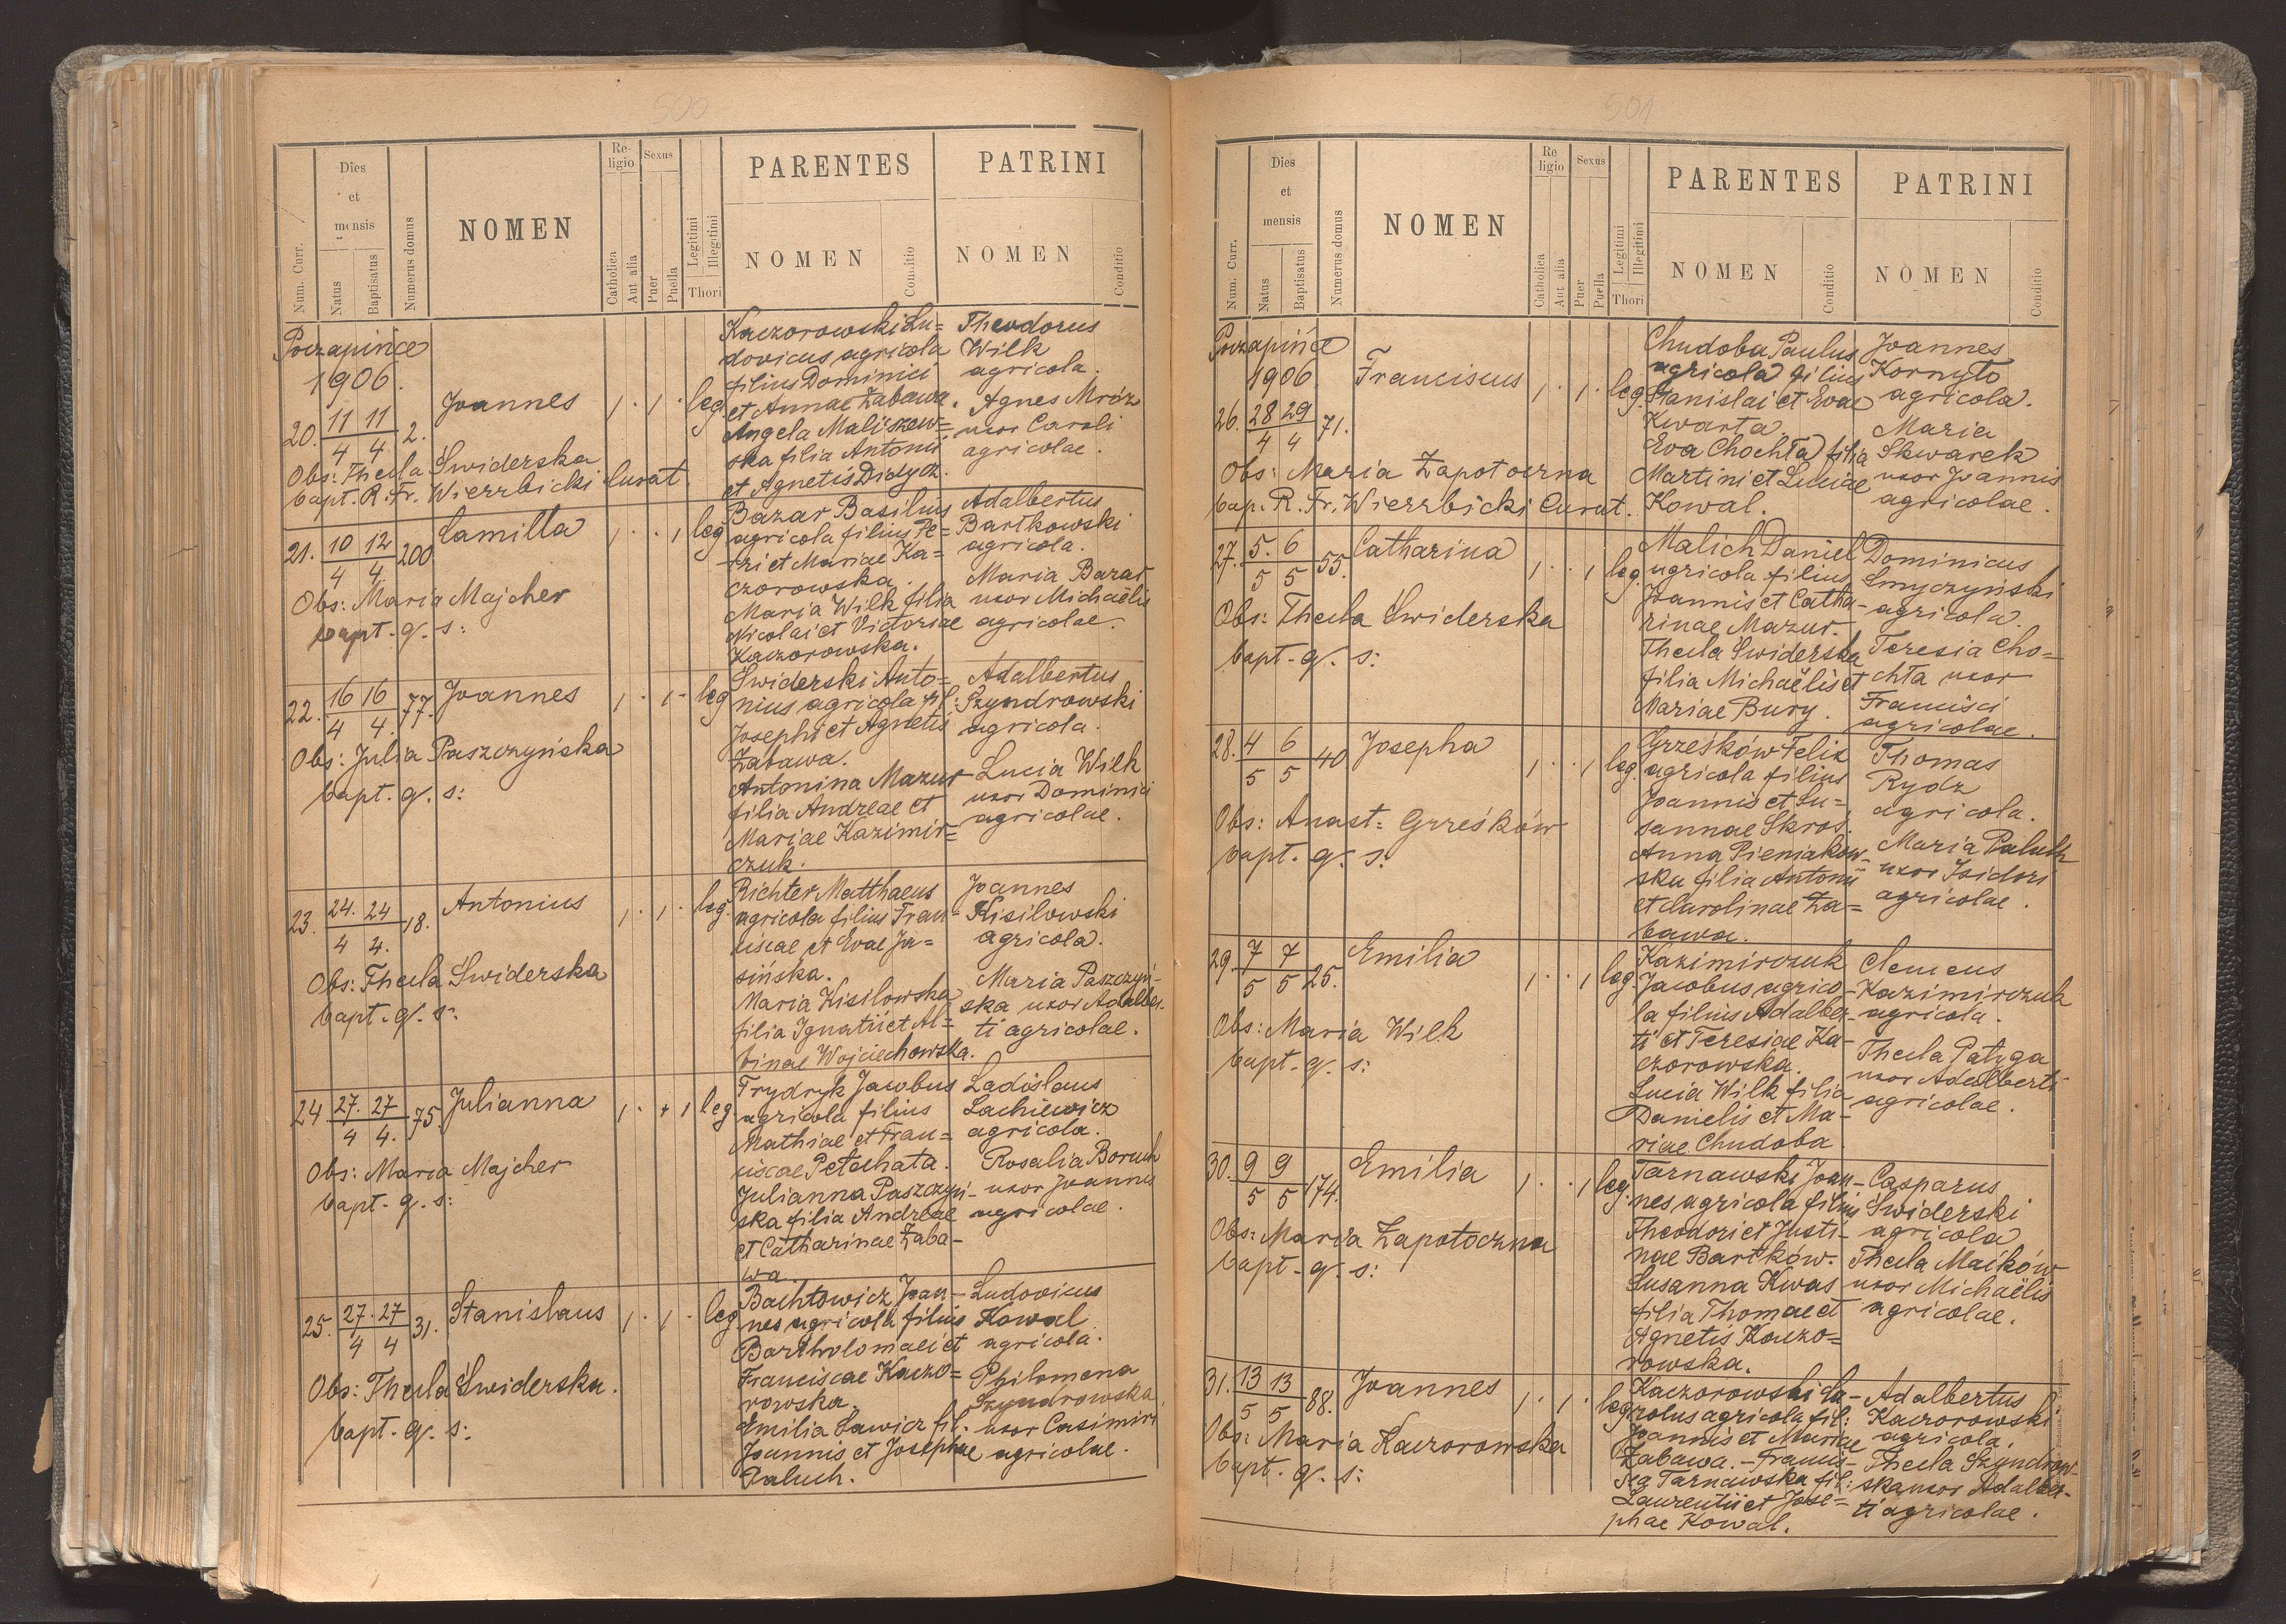 500
Dies et mensis
Num. Curr.
Natus
Baptisatus
Numerus domus
NOMEN
Religio
Catholica
Aut alia
Sexus
Puer
Puella
Legitimi
Illegitimi
Thori
PARENTES
NOMEN
Conditio
PATRINI
NOMEN
Conditio
Poczapińce
1906.
20. 11/4 11/4 2. Joannes 1 . 1 . leg.
Obs: Thecla Świderska
bapt. R. Fr. Wierzbicki Curat.
Kaczorowski Lu=
dovicus agricola
filius Dominici
et Annae Zabawa.
Angela Maliszew=
ska filia Antonii
et Agnetis Didycz.
Theodorus
Wilk
agricola.
Agnes Mróz
uxor Caroli
agricolae.
21. 10/4 12/4 200 Camilla 1 . . 1 leg
Obs: Maria Majcher
bapt. q. s:
Bazar Basilius
agricola filius Pe=
tri et Mariae Ka=
czorowska.
Maria Wilk filia
Nicolai et Victoriae
Kaczorowska.
Adalbertus
Bartkowski
agricola.
Maria Bazar
uxor Michaëlis
agricolae.
22. 16/4 16/4 77. Joannes 1 . 1 . leg
Obs: Julia Paszczyńska
bapt. q. s:
Świderski Anto=
nius agricola fil:
Josephi et Agnetis
Zabawa.
Antonina Mazur
filia Andreae et
Mariae Kazimir=
czuk.
Adalbertus
Szyndrowski
agricola.
Lucia Wilk
uxor Dominici
agricolae.
23. 24./4 24/4. 18. Antonius 1 . 1 . leg.
Obs: Thecla Świderska
bapt. q. s:
Richter Matthaeus
agricola filius Fran-
ciscae et Evae Ja=
sińska.
Maria Kisilowska
filia Ignatii et Al=
binae Wojciechowska.
Joannes
Kisilowski
agricola.
Maria Paszczyń-
ska uxor Adalber-
ti agricolae.
24 27./4 27/4. 75. Julianna 1 . . 1 leg
Obs: Maria Majcher
bapt. q. s:
Frydryk Jacobus
agricola filius
Mathiae et Fran=
ciscae Petachata.
Julianna Paszczyń-
ska filia Andreae
et Catharinae Zaba-
wa.
Ladislaus
Lachiewicz
agricola.
Rosalia Boruch
uxor Joannis
agricolae.
25. 27./4 27/4 31. Stanislaus 1 . 1 . leg
Obs: Thecla Świderska.
bapt. q. s:
Bachtowicz Joan-
nes agricola filius
Bartholomaei et
Franciscae Kaczo=
rowska.
Emilia Sawicz fil:
Joannis et Josephae
Paluch.
Ludovicus
Kowal
agricola.
Philomena
Szyndrowska
uxor Casimiri
agricolae.
501
Dies et mensis
Num. Curr.
Natus
Baptisatus
Numerus domus
NOMEN
Religio
Catholica
Aut alia
Sexus
Puer
Puella
Legitimi
Illegitimi
Thori
PARENTES
NOMEN
Conditio
PATRINI
NOMEN
Conditio
Poczapińce
1906.
26. 28/4 29/4 71. Franciscus 1 . 1 . leg.
Obs: Maria Zapotoczna
bap. R. Fr. Wierzbicki Curat.
Chudoba Paulus
agricola filius
Stanislai et Evae
Kwarta.
Eva Chochta filia
Martini et Luciae
Kowal.
Joannes
Kornyło
agricola.
Maria
Skwarek
uxor Joannis
agricolae.
27. 5./5 6/5 55. Catharina 1 . . 1 leg.
Obs: Thecla Świderska
bapt. q. s:
Malich Daniel
agricola filius
Joannis et Catha-
rinae Mazur.
Thecla Świderska
filia Michaëlis et
Mariae Bury.
Dominicus
Smyczyński
agricola.
Teresia Cho=
chta uxor
Francisci
agricolae.
28. 4/5 6/5 40 Josepha 1 . . 1 leg.
Obs: Anast= Grześków
bapt. q. s.
Grześków Felix
agricola filius
Joannis et Su=
sannae Skros.
Anna Pieniakow-
ska filia Antonii
et Carolinae Za=
bawa.
Thomas
Rydz
agricola.
Maria Paluch
uxor Isidori
agricolae.
29. 7/5 7/5 25. Emilia 1 . . 1 leg.
Obs: Maria Wilk
bapt. q. s:
Kazimirczuk
Jacobus agrico-
la filius Adalber-
ti et Teresiae Ka-
czorowska.
Lucia Wilk filia
Danielis et Ma-
riae Chudoba
Clemens
Kazimirczuk
agricola.
Thecla Patyga
uxor Adalberti
agricolae.
30. 9/5 9/5 174. Emilia 1 . . 1 leg.
Obs: Maria Zapotoczna
bapt. q. s:
Tarnawski Joan-
nes agricola filius
Theodori et Justi-
nae Bartków.
Susanna Kwas
filia Thomae et
Agnetis Kaczo=
rowska.
Casparus
Świderski
agricola
Thecla Maików
uxor Michaëlis
agricolae.
31. 13/5 13/5 88. Joannes 1 . 1 . leg
Obs: Maria Kaczorowska
bapt. q. s:
Kaczorowski Ca-
rolus agricola fil:
Joannis et Mariae
Zabawa. - Francis-
ca Tarnawska fil:
Laurentii et Jose=
phae Kowal.
Adalbertus
Kaczorowski
agricola.
Thecla Szyndrow-
ska uxor Adalber-
ti agricolae.